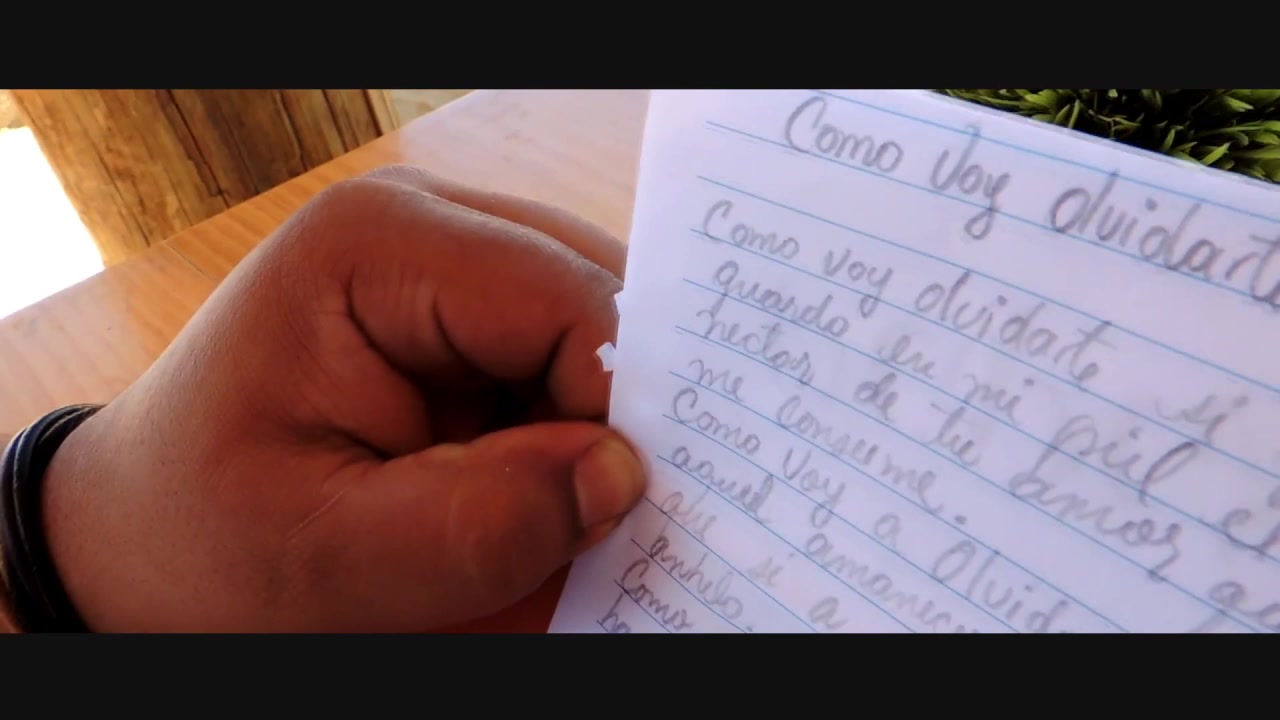 Como Voy olvidarte
Como voy olvidarte si
guardo en mi piel el
nectar de tu amor
me consume.
Como Voy a Olvid
aquel amanec
que si a
anhelo.
Como